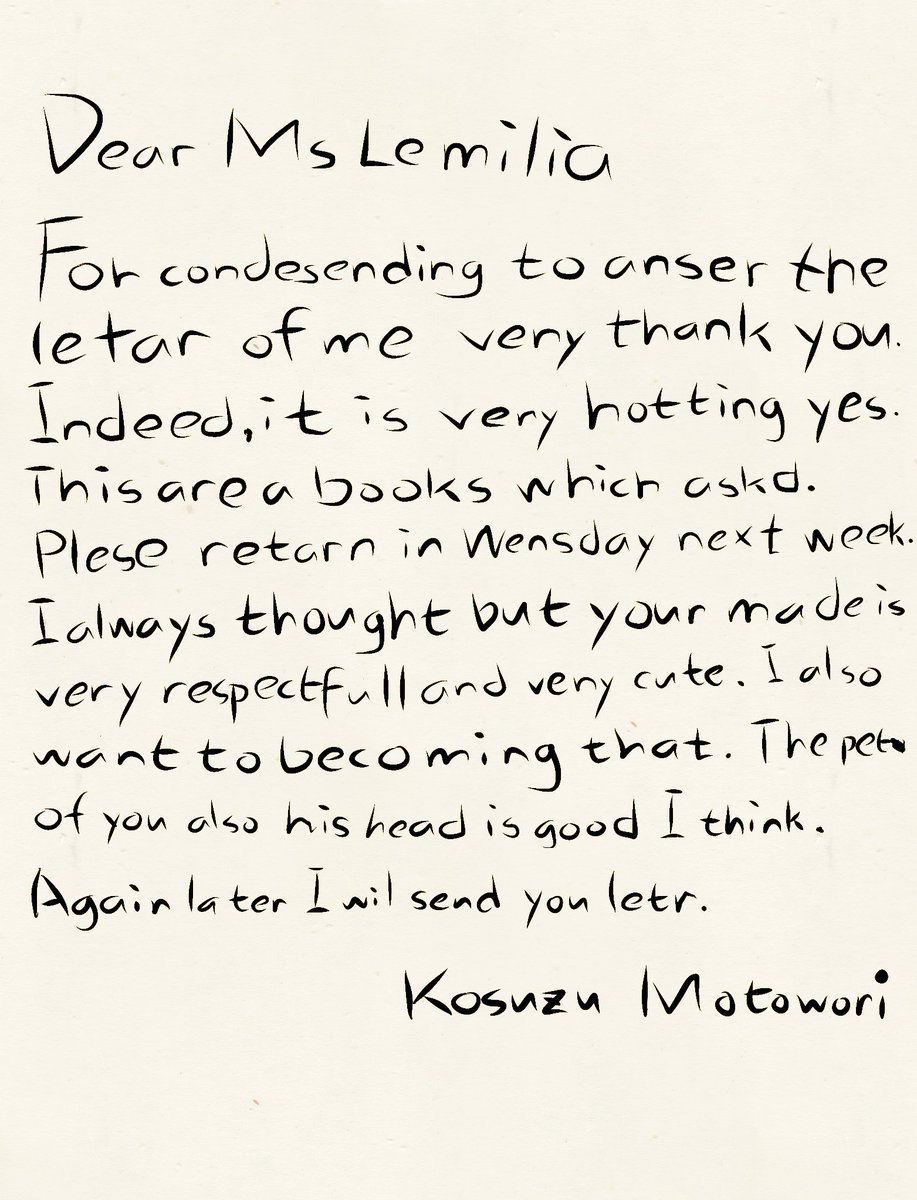 Dear Ms Lemilia
For condesending to anser the
letar of me very thank you.
Indeed, it is very hotting yes.
This are a books which askd.
Plese retarn in Wensday next week.
I always thought but your made is
very respectfull and very cute. I also
want to becoming that. The pet
of you also his head is good I think.
Again later I wil send you letr.
Kosuzu Motowori